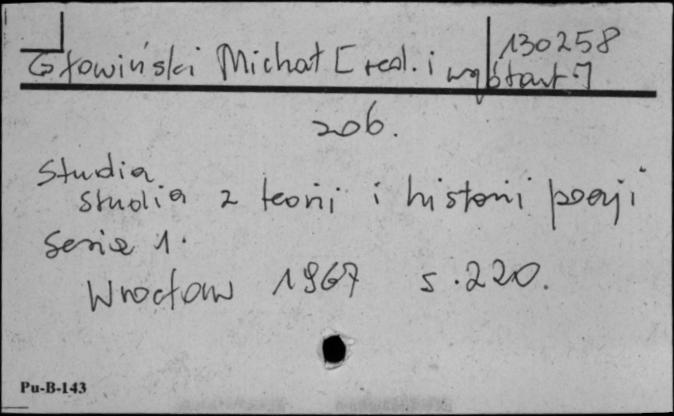 130258
Głowiński Michał [red. i współaut.]
zob.
Studia
Studia z teorii i historii poezji
Seria 1.
Wrocław 1967 s. 220.
Pu-B-143